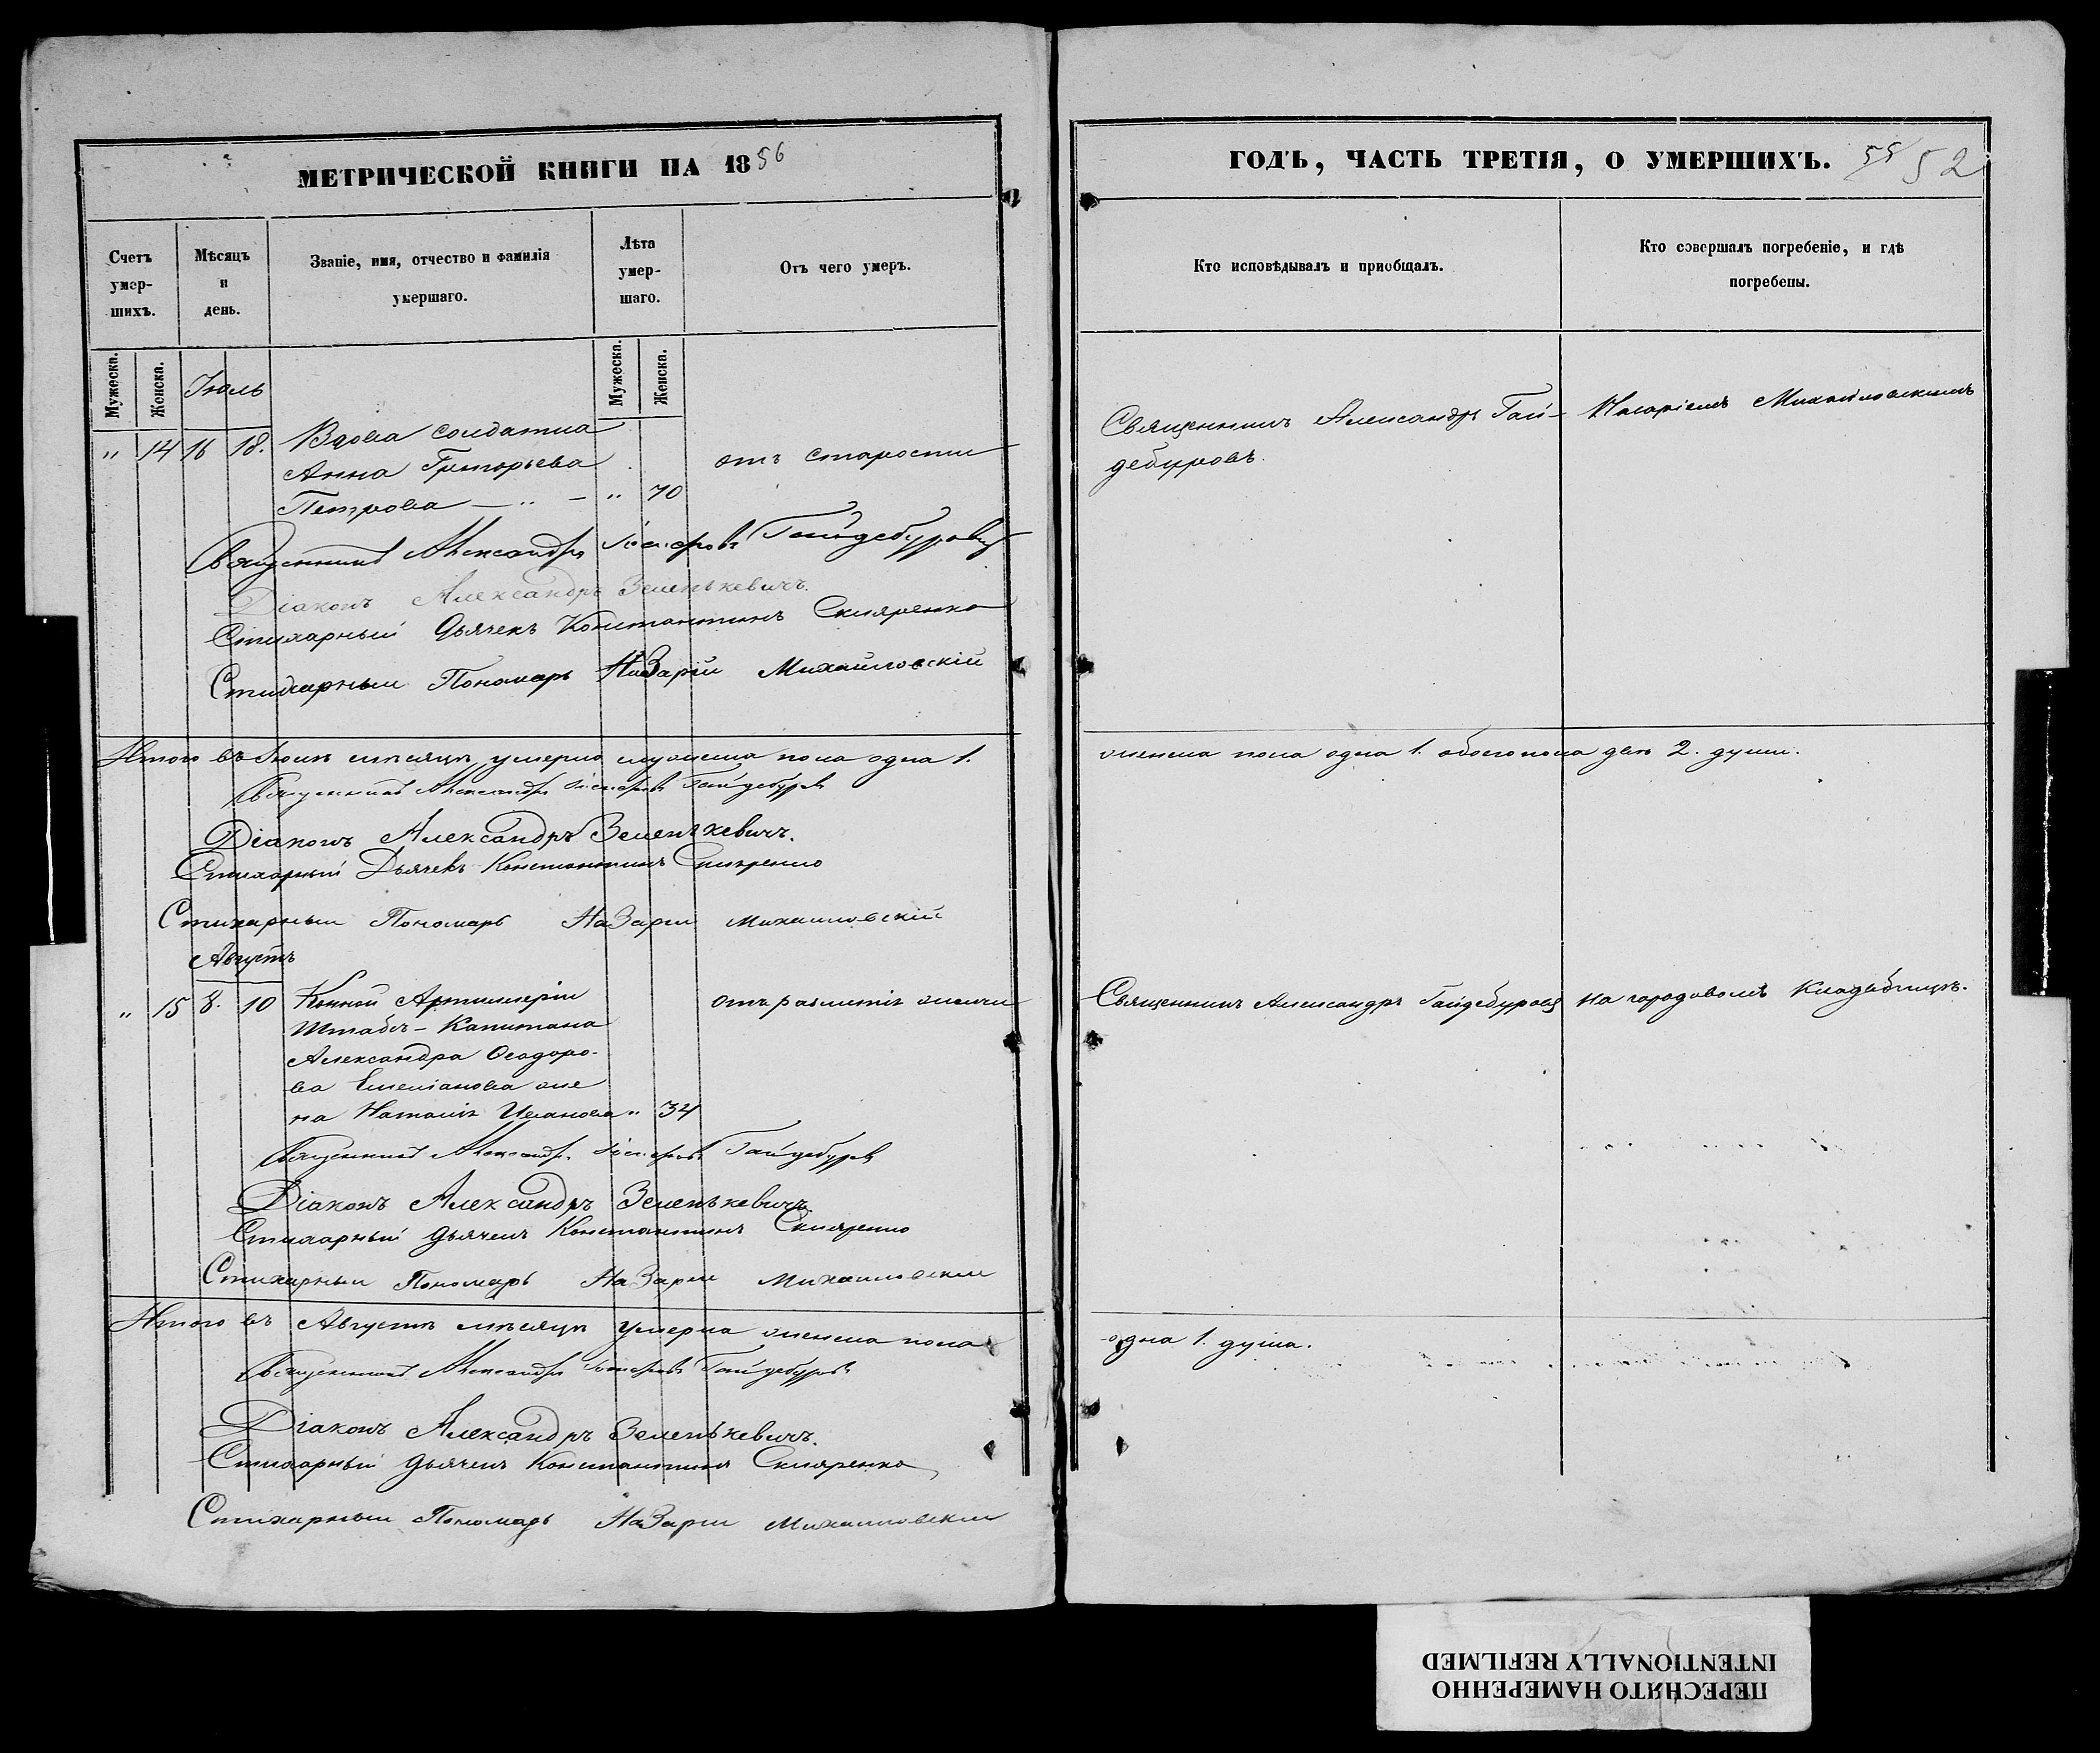 МЕТРИЧЕСКОЙ КНИГИ НА 1856
Счетъ умер-шихъ.
Мѣсяцъ и день.
Званіе, имя, отчество и фамилія умершаго.
Лѣта умер-шаго.
Отъ чего умеръ.
Мужеска. Женска.
Мужеска. Женска.
Іюль
" 14 16 18. Вдова солдатка
Анна Григорьева отъ старости
Петрова — " — " 70
Священникъ Александръ Гайдебуровъ
Діаконъ Александръ Зеленкевичъ.
Стихарный Дьячекъ Константинъ Скляренко
Стихарный Пономарь Назарій Михайловскій
Итого въ Іюлѣ мѣсяцѣ умерло мужеска пола одна 1.
Священникъ Александръ Гайдебуровъ
Діаконъ Александръ Зеленкевичъ.
Стихарный Дьячекъ Константинъ Скляренко
Стихарный Пономарь Назарий Михайловскій
Августъ
" 15 8. 10 Конной Артиллеріи
Штабсъ-Капитана
Александра Ѳеодоро-
ва Емельянова же
на Наталія Иванова " 34
Священникъ Александръ Гайдебуровъ
Діаконъ Александръ Зеленкевичъ.
Стихарный Дьячекъ Константинъ Скляренко
Стихарный Пономарь Назарий Михайловский
Итого въ Августѣ мѣсяцѣ умерла женска пола
Священникъ Александръ Гайдебуровъ
Діаконъ Александръ Зеленкевичъ.
Стихарный Дьячекъ Константинъ Скляренко
Стихарный Пономарь Назарий Михайловский
ГОДЪ, ЧАСТЬ ТРЕТІЯ, О УМЕРШИХЪ. 52
Кто исповѣдывалъ и пріобщалъ.
Кто совершалъ погребеніе, и гдѣ погребены.
Священникъ Александръ Гай- Назаріемъ Михайловскимъ
дебуровъ.
женска пола одна 1. обоего пола двѣ 2. души.
Священникъ Александръ Гайдебуровъ На городовомъ Кладбищѣ.
одна 1. душа.
ПЕРЕСНЯТО НАМЕРЕННО
INTENTIONALLY REFILMED